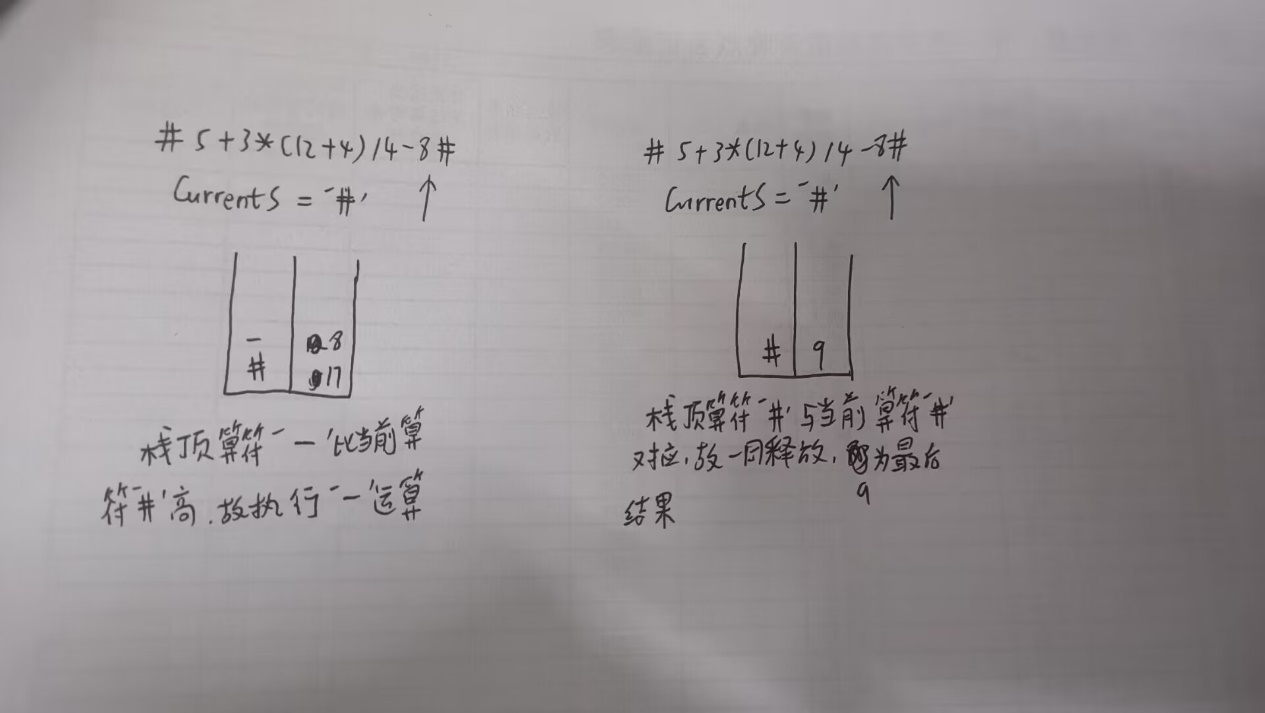 # 5+3*(12+4)/4-8#
CurrentS = '#' ↑
- 8
# 17
栈顶算符'-'比当前算
符'#'高.故执行'-'运算
# 5+3*(12+4)/4-8#
CurrentS = '#' ↑
# 9
栈顶算符'#'与当前算符'#'
对应,故一同释放,9为最后
结果